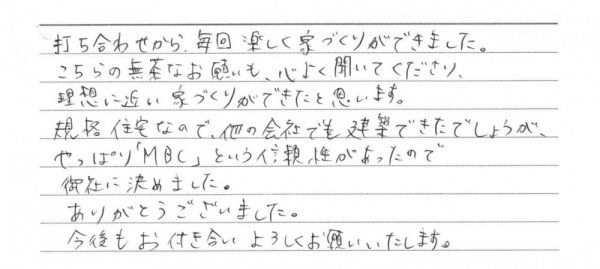 打ち合わせから、毎回楽しく家づくりができました。
こちらの無茶なお願いも、心よく聞いてくださり、
理想に近い家づくりができたと思います。
規格住宅なので、他の会社でも建築できたでしょうが、
やっぱり「MBC」という信頼性があったので
御社に決めました。
ありがとうございました。
今後もお付き合いよろしくお願いいたします。